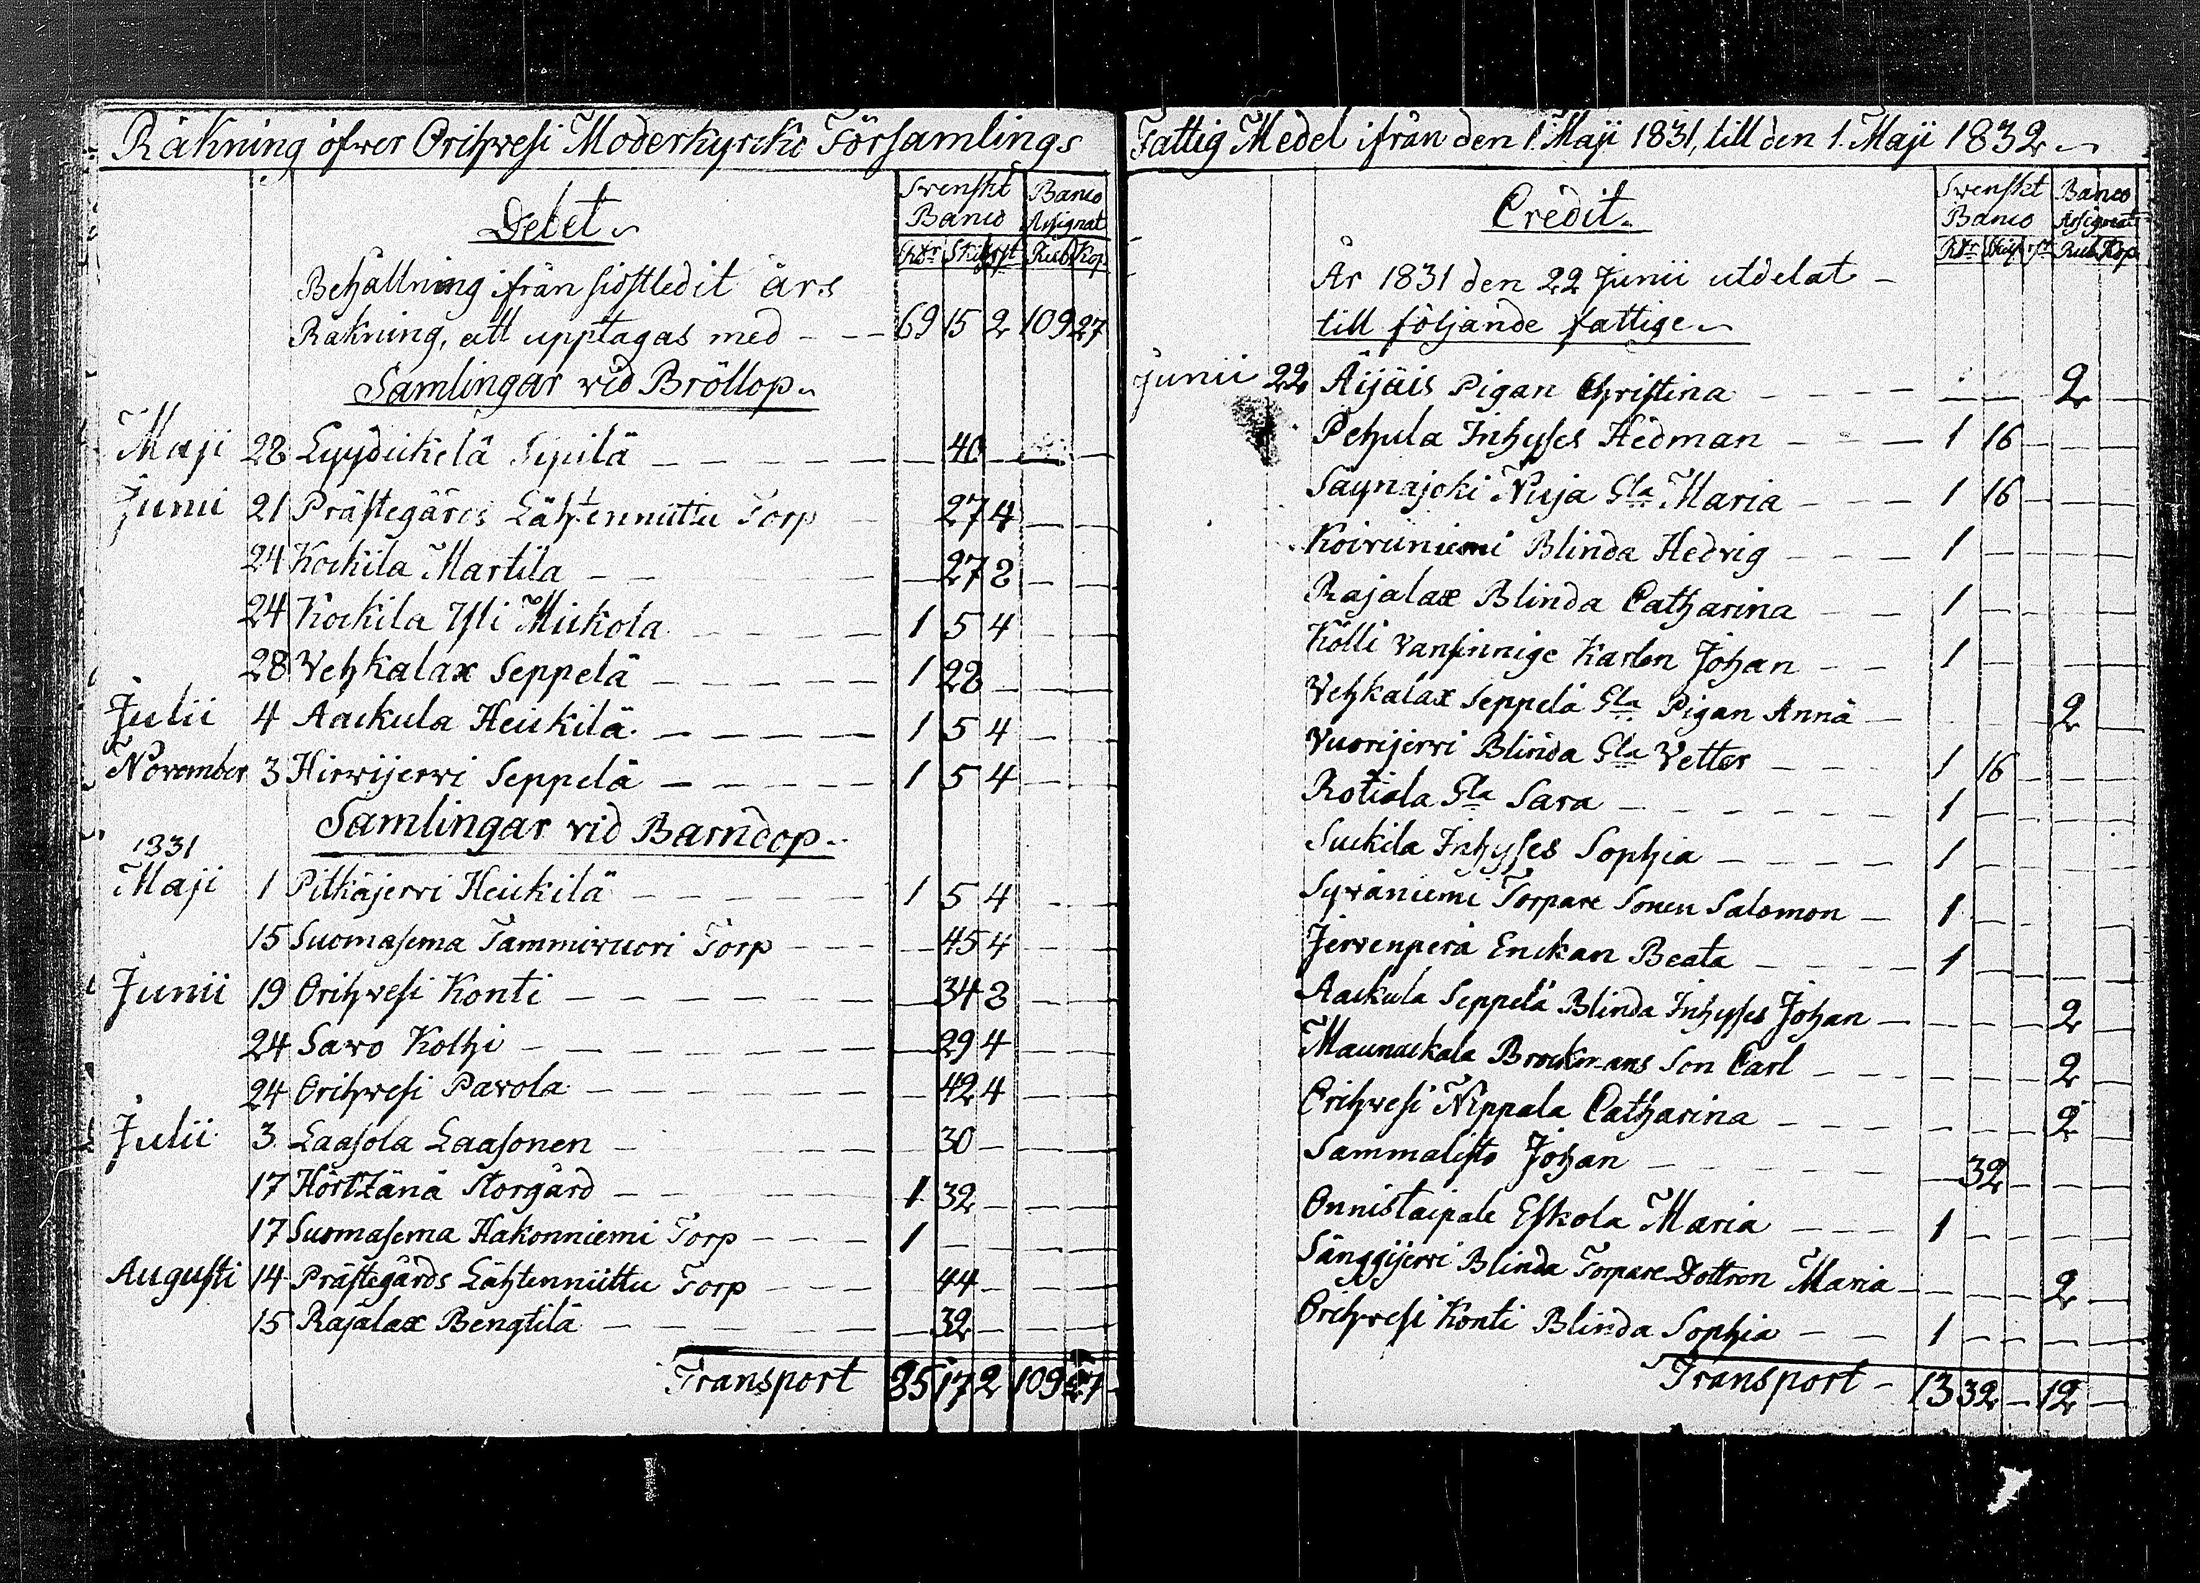 Räkning öfwer Orihwesi Moderkyrcko Församlings
Debet
Svenskt Banco
Banco Assignat
Rdr Skill rst Rub Kop
Behållning ifrån sidstledit års
Räkning, att upptagas med - - 69 15 2 109 27
Samlingar vid Bröllop
Maji 28 Lyydickelä Sipilä - - - - - 40 - - -
Junii 21 Prästegårds Lähtenniittu Torp - 27 4 - -
24 Kockila Martila - - - - 27 8 - -
24 Kockila Yli Mickola - - - - 1 5 4
28 Vehkalax Seppelä - - - - - 1 28 -
Julii 4 Aackula Heickilä - - - - - 1 5 4
November 3 Hirvijervi Seppelä - - - - 1 5 4
Samlingar vid Barndop
1831
Maji 1 Pitkäjervi Heickilä - - - - - 1 5 4
15 Suomasema Tammivuori Torp - - - - 45 4
Junii 19 Orihvesi Konti - - - - - - 34 8 - -
24 Savo Kolhi - - - - - - - 29 4
24 Orihvesi Pavola - - - - - - 42 4
Julii 3 Laasola Laasonen - - - - - 30 -
17 Hörtzänä Storgård - - - - - 1 32 -
17 Suomasema Hakonniemi Torp - - - 1 - - - -
Augusti 14 Prästegårds Lähtenniittu Torp - - - 44 - - -
15 Rajalax Bengtilä - - - - - - 32 - - -
Transport 85 17 2 109 27
Fattig Medel ifrån den 1. Maji 1831, till den 1. Maji 1832
Credit
Svenskt Banco
Banco Assignat
Rdr Skill rst Rub Kop
År 1831 den 22 Junii utdelat -
till följande fattige
Junii 22 Äijäis Pigan Christina - - - - - - - 2 -
Pehula Inhyses Hedman - - - 1 16 -
Saynajoki Nuja Gla Maria - - - 1 16 -
Koiruniemi Blinda Hedvig - - - 1 -
Rajalax Blinda Catharina - - 1 -
Kölli Vansinnige Karlen Johan - - 1 -
Vehkalax Seppelä Gla Pigan Anna - - - - 2 -
Vuorijervi Blinda Gla Vetter - - - 1 16 -
Rotiala Gla Sara - - - - - - 1 -
Suckila Inhyses Sophia - - - - 1 -
Syväniemi Torpare Sonen Salomon - 1 -
Jervenperä Enckan Beata - - - - 1 - -
Aackula Seppelä Blinda Inhyses Johan - - - - 2 -
Maunackala Brockmans Son Carl - - - - - - 2 -
Orihvesi Nippala Catharina - - - - - - - 2 -
Sammalisto Johan - - - - - - 32 - - -
Onnistaipale Eskola Maria - - - 1 - - - -
Sänggijervi Blinda Torpare Dottron Maria - - - - - 2 -
Orihvesi Konti Blinda Sophia - - 1 - - - -
Transport - 13 32 - 12 -